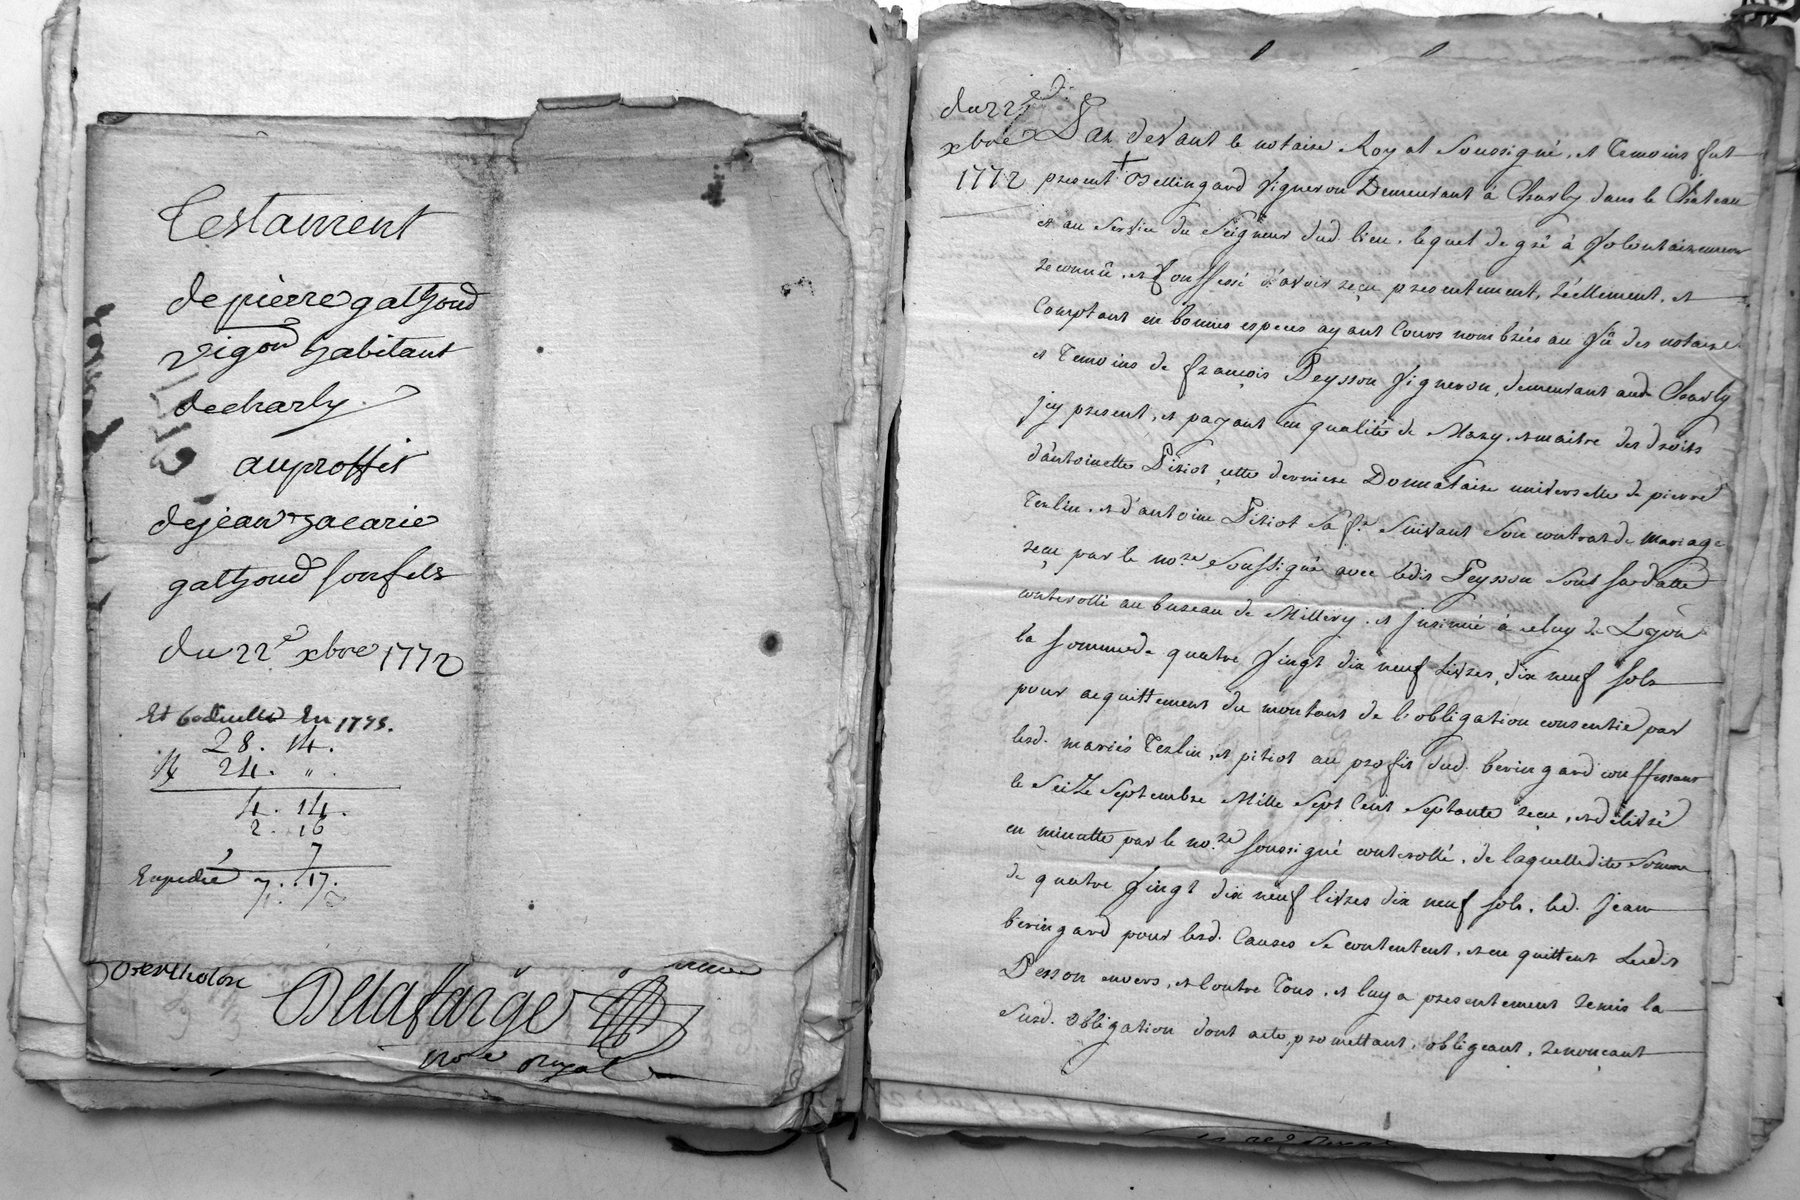 Testament
de pierre gathoud
vigon habitant
decharly
auproffit
dejean zacarie
gathoud son fils
du 22e xbre 1772
Et En 1775.
28. 14.
24. "
4. 14.
2. 16
7
Expedié 7. 17.
Delafarge
nore Royal
du 22e
xbre
1772
Par devant le notaire Royal Soussigné, et Temoins fut
present Bellingard Vigneron Demeurant à Charly dans le Chateau
et au Service du Seigneur dud. lieu, lequel de gré à Volontairement
reconnû, et Confessé d'avoir reçu presentement, réellement, et
Comptant en bonnes especes ayant Cours nombrées au Vû des notaire
et Temoins de françois Peysson Vigneron, demeurant aud. Charly
jcy present, et payant en qualité de Mary, et maitre des droits
d'antoinette Pitiot cette derniere Donnataire universelle de pierre
Terlin, et d'antoine Pitiot sa fe. Suivant Son contrat de Mariage
reçu par le nore. Soussigné avec ledit Peysson Sous Sa datte
controllé au bureau de Millery, et jnsinué à celuy de Lyon
la Somme de quatre Vingt dix neuf Livres, dix neuf Sols
pour acquittement du montant de l'obligation consentie par
lesd. mariés Terlin, et pitiot au profit dud. beringard confessant
le Seize Septembre Mille Sept Cent Septante reçu, et délivré
en minutte par le nore. Soussigné controllé, de laquelle dite Somme
de quatre Vingt dix neuf livres dix neuf Sols, led. Jean
beringard pour lesd. Causes Se contentent, et en quittent Ledit
Pesson envers, et Contre Tous, et luy a presentement remis la
Susd. Obligation dont acte, promettant, obligeant, renonçant